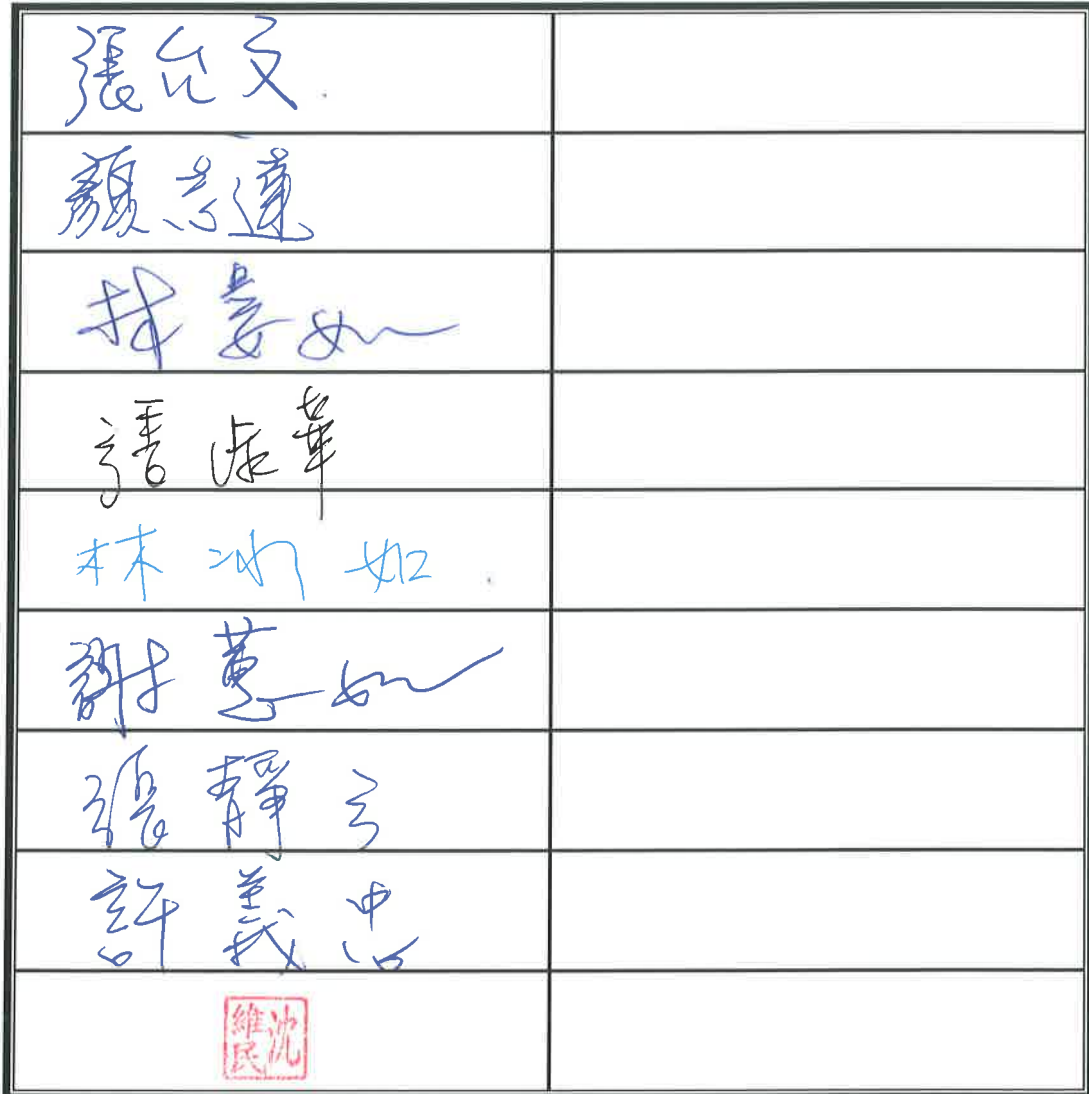 張允文
顏志達
林晏如
淑華
林冰如
謝蕙如
張靜云
許義忠
沈維民